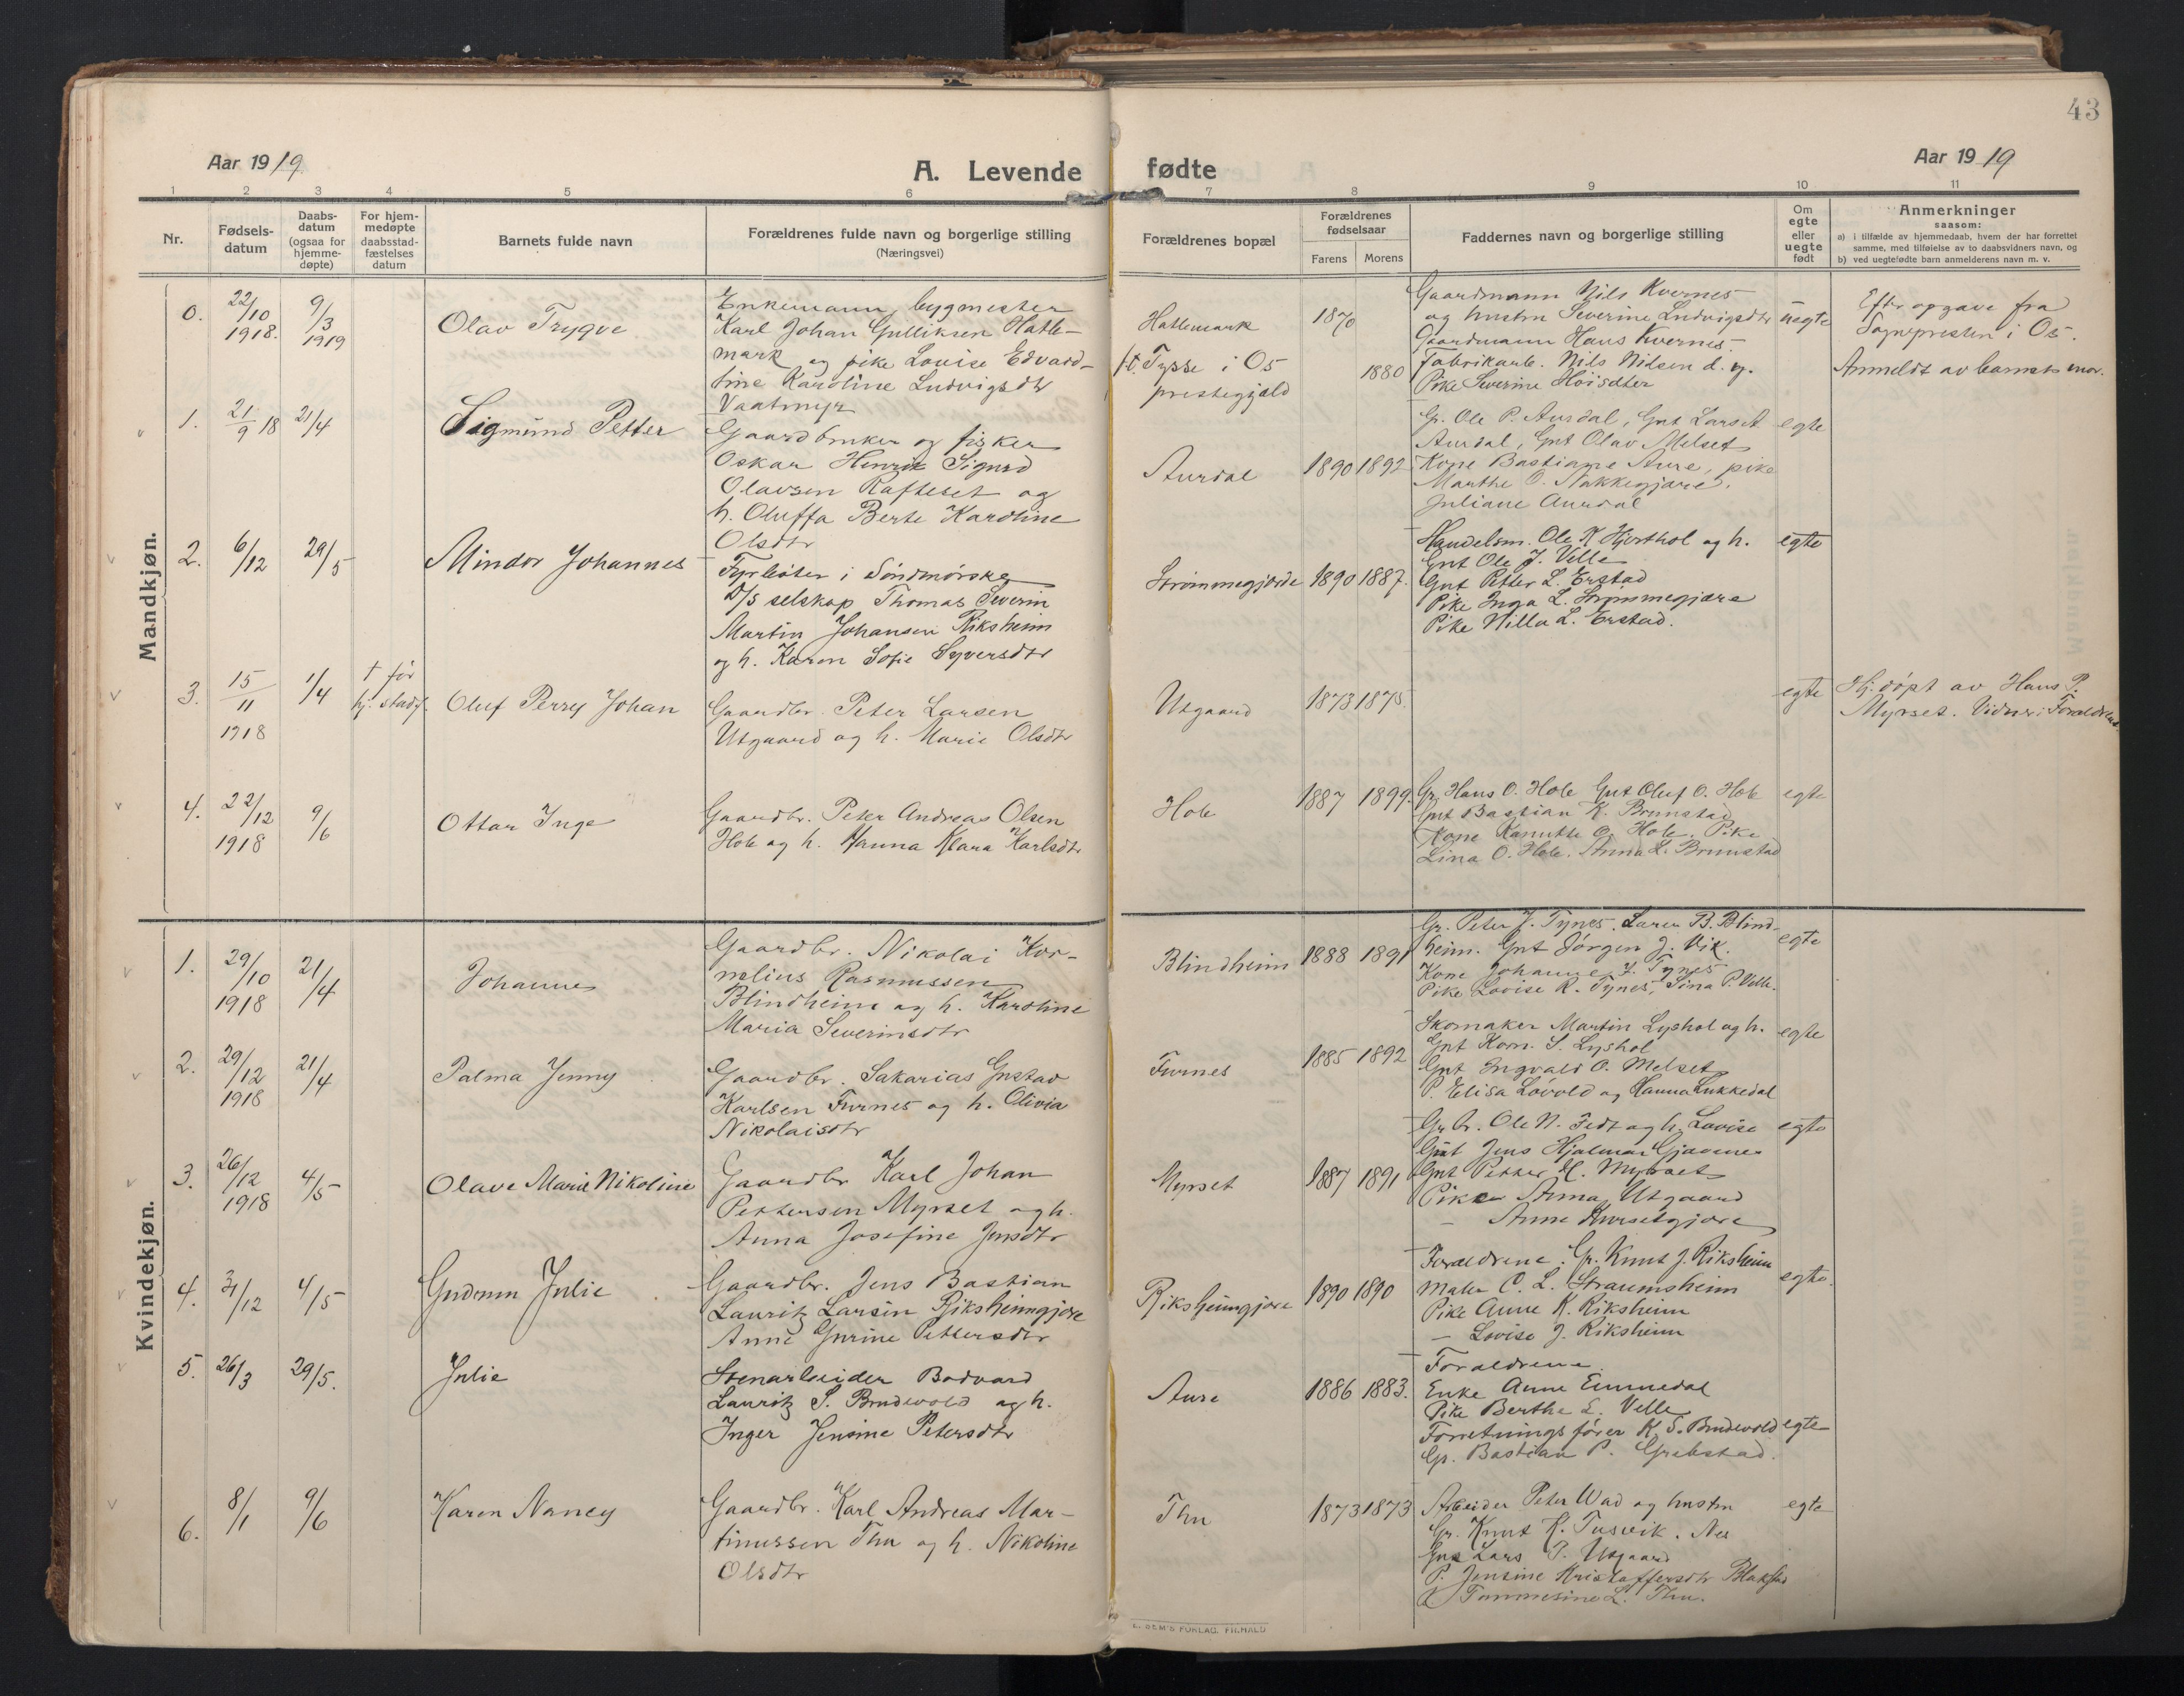 43
Aar 1919
A. Levende
fødte
Aar 1919
1 2 3 4 5 6 7 8 9 10 11
Nr.
Fødsels-
datum
Daabs-
datum
(ogsaa for
hjemme-
døpte)
For hjem-
medøpte
daabsstad-
fæstelses
datum
Barnets fulde navn
Forældrenes fulde navn og borgerlige stilling
(Næringsvei)
Forældrenes bopæl
Forældrenes
fødselsaar
Farens
Morens
Faddernes navn og borgerlige stilling
Om
egte
eller
uegte
født
Anmerkninger
saasom:
a) i tilfælde av hjemmedaab, hvem der har forrettet
samme, med tilføielse av to daabsvidners navn, og
b) ved uegtefødte barn anmelderens navn m. v.
Mandkjøn.
0.
22/10
1918.
9/3
1919
Olav Trygve
Enkemann, bygmester
Karl Johan Gulliksen Hatle-
mark og pike Lovise Edvard-
tine Karoline Ludvigsdtr
Vaatmyr
Hatlemark
ft. Tysse i Os
prestegjæld
1870
1880
Gaardmann Nils Kvernes
og hustru Severine Ludvigsdtr
Gaardmann Hans Kvernes.
Fabrikarb. Nils Nilsen d. y.
Pike Severine Høisæter
uegte
Efter opgave fra
Sognepresten i Os.
Anmeldt av barnets mor.
1.
21/9 18
21/4
Sigmund Petter
Gaardbruker og fisker
Oskar Henrik Sigurd
Olavsen Rafteset og
h. Oluffa Berte Karoline
Olsdtr
Aursdal
1890 1892
Gr. Ole P. Aursdal, Gut Lars A.
Aursdal, Gut Olav Melset
Kone Bastiane Aure, pike
Marthe O. Nakkegjære.
Juliane Aursdal
egte
2.
6/12
29/5
Mindor Johannes
Fyrbøter i Søndmørske
D/S selskap Thomas Severin
Martin Johansen Riksheim
og h. Karen Sofie Syversdtr
Strømmegjerde
1890 1887.
Handelsm. Ole K Hjorthol og h.
Gut Ole J. Velle
Gut Petter L. Erstad
Pike Inga L. Strømmegjære
Pike Nilla L. Erstad.
egte
3.
15/11
1918
1/4
† før
hj. stadf.
Oluf Perry Johan
Gaardbr. Peter Larsen
Utgaard og h. Marie Olsdtr
Utgaard
1873 1875.
egte
Hj. døpt av Hans P.
Myrset. Vidner: Forældrene.
4.
22/12
1918
9/6
Ottar Inge
Gaardbr. Peter Andreas Olsen
Hole og h. Hanna Klara Karlsdtr
Hole
1887 1899.
Gr. Hans O. Hole Gut Oluf O. Hole
Gut Bastian K. Brunstad
Kone Kanutte O. Hole. Pike
Lina O. Hole. Anna L. Brunstad
egte
Kvindekjøn.
1.
29/10
1918
21/4
Johanne
Gaardbr. Nikolai Kor-
nelius Rasmussen
Blindheim og h. Karoline
Maria Severinsdtr
Blindheim
1888 1891
Gr. Peter J. Tynes. Laren B. Blind-
heim. Gut Jørgen J. Vik.
Kone Johanne J. Tynes
Pike Lovise R. Tynes, Sina P. Velle.
egte
2.
29/12
1918
21/4
Palma Jenny
Gaardbr. Sakarias Gustav
Karlsen Furnes og h. Olivia
Nikolaisdtr
Furnes
1885 1892
Skomaker Martin Lyshol og h.
Gut Korn. S. Lyshol
Gut Ingvald O. Melset
P. Elisa Løvold og Hanna Lukkedal
egte
3.
26/12
1918
4/5
Olave Marie Nikoline
Gaardbr Karl Johan
Pettersen Myrset og h.
Anna Josefine Jensdtr
Myrset
1887 1891
Gr. br. Ole N. Fedt og h. Lovise
Gut Jens Hjalmar Gjævenes
Gut Petter H. Myrset
Pike Anna Utgaard
— Anne Kurset­gjære
egte
4.
31/12
4/5
Gudrun Julie
Gaardbr. Jens Bastian
Lauritz Larsen Riksheimgjære
Anne Gurine Pettersdtr
Riksheimgjære
1890 1890
Forældrene. Gr. Knut J. Riksheim
Maler C. L. Straumsheim
Pike Anne K. Riksheim
— Lovise J. Riksheim
egte.
5.
26/3
29/5.
Julie
Stenarbeider Bodvard
Lauritz S. Brudevold og h.
Inger Jensine Petersdtr
Aure
1886 1883.
Forældrene.
Enke Anne Emmedal
Pike Berthe L. Velle
Forretningsfører K. S. Brudevold
Gr. Bastian P. Grebstad.
egte
6.
8/1
9/6
Karen Nancy
Gaardbr. Karl Andreas Mar-
tinussen Thu og h. Nikoline
Olsdtr
Thu
1873 1873
Arbeider Peter Wad og hustru
Gr. Knut K. Tusvik.
Gut Lars P. Utgaard
P. Jensine Kristoffersdtr Blakstad
Tommesine L. Thu.
egte
E. SEM'S FORLAG, FR.HALD